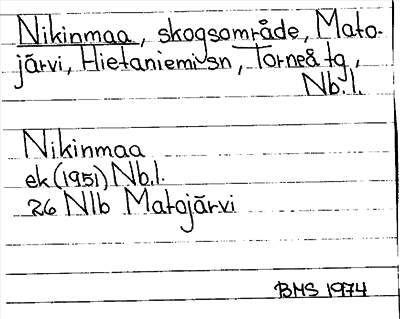 Nikinmaa, skogsområde, Mato-
järvi, Hietaniemi sn, Torneå tg,
Nb.l.
Nikinmaa
ek (1951) Nb.l.
26 Nlb Matojärvi
BMS 1974